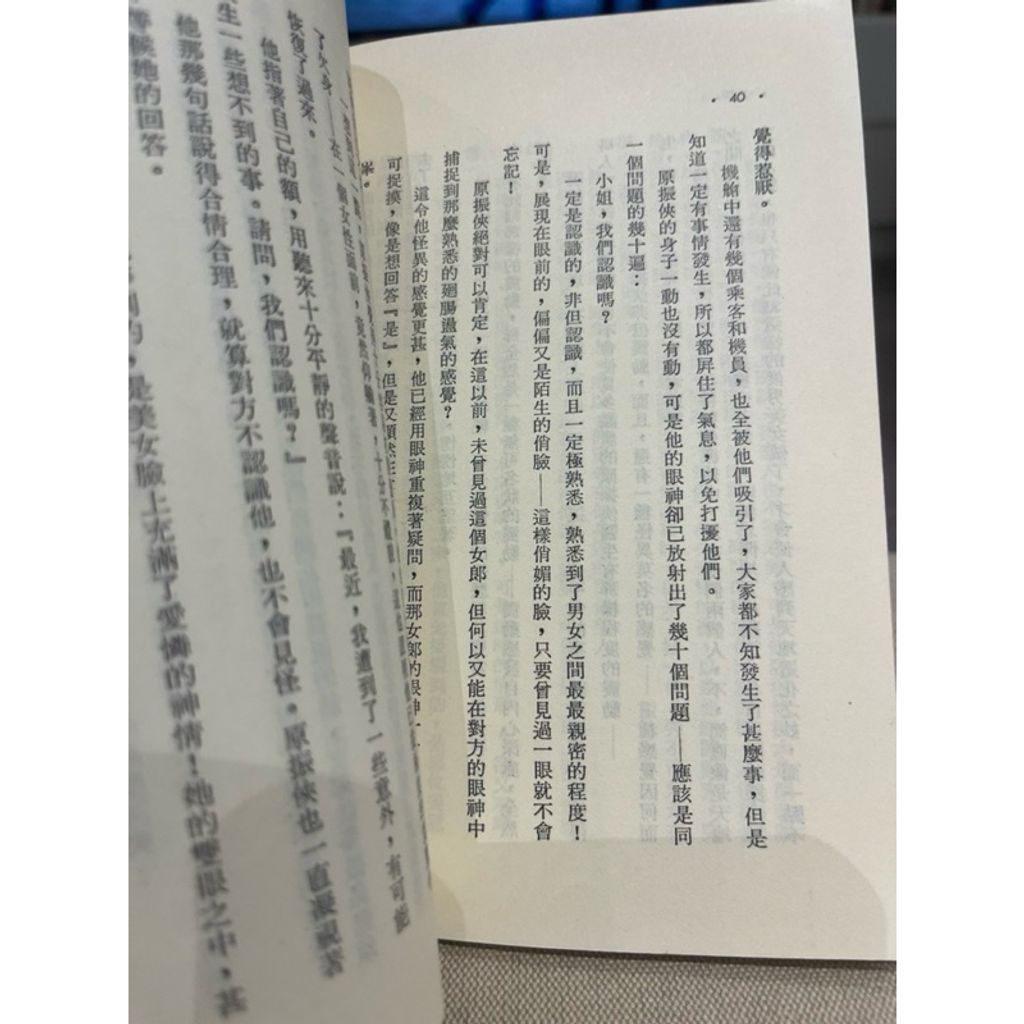 • 40 •
覺得惹厭。
機艙中還有幾個乘客和機員，也全被他們吸引了，大家都不知發生了甚麼事，但是
知道一定有事情發生，所以都屏住了氣息，以免打擾他們。
原振俠的身子一動也沒有動，可是他的眼神卻已放射出了幾十個問題——應該是同
一個問題的幾十遍：
小姐，我們認識嗎？
一定是認識的，非但認識，而且一定極熟悉，熟悉到了男女之間最最親密的程度！
可是，展現在眼前的，偏偏又是陌生的俏臉——這樣俏媚的臉，只要曾見過一眼就不會
忘記！
原振俠絕對可以肯定，在這以前，未曾見過這個女郎，但何以又能在對方的眼神中
捕捉到那麼熟悉的廻腸盪氣的感覺？
這令他怪異的感覺更甚，他已經用眼神重複著疑問，而那女郎的眼神
可捉摸，像是想回答『是』，但是又
米。
了欠身——在一個女性面前，
恢復了過來。
他指著自己的額，用聽來十分平靜的聲音說：『最近，我遭到了一些意外，有可能
生一些想不到的事。請問，我們認識嗎？』
他那幾句話說得合情合理，就算對方不認識他，也不會見怪。原振俠也一直凝視著
等候她的回答。
是美女臉上充滿了愛憐的神情！她的雙眼之中，甚